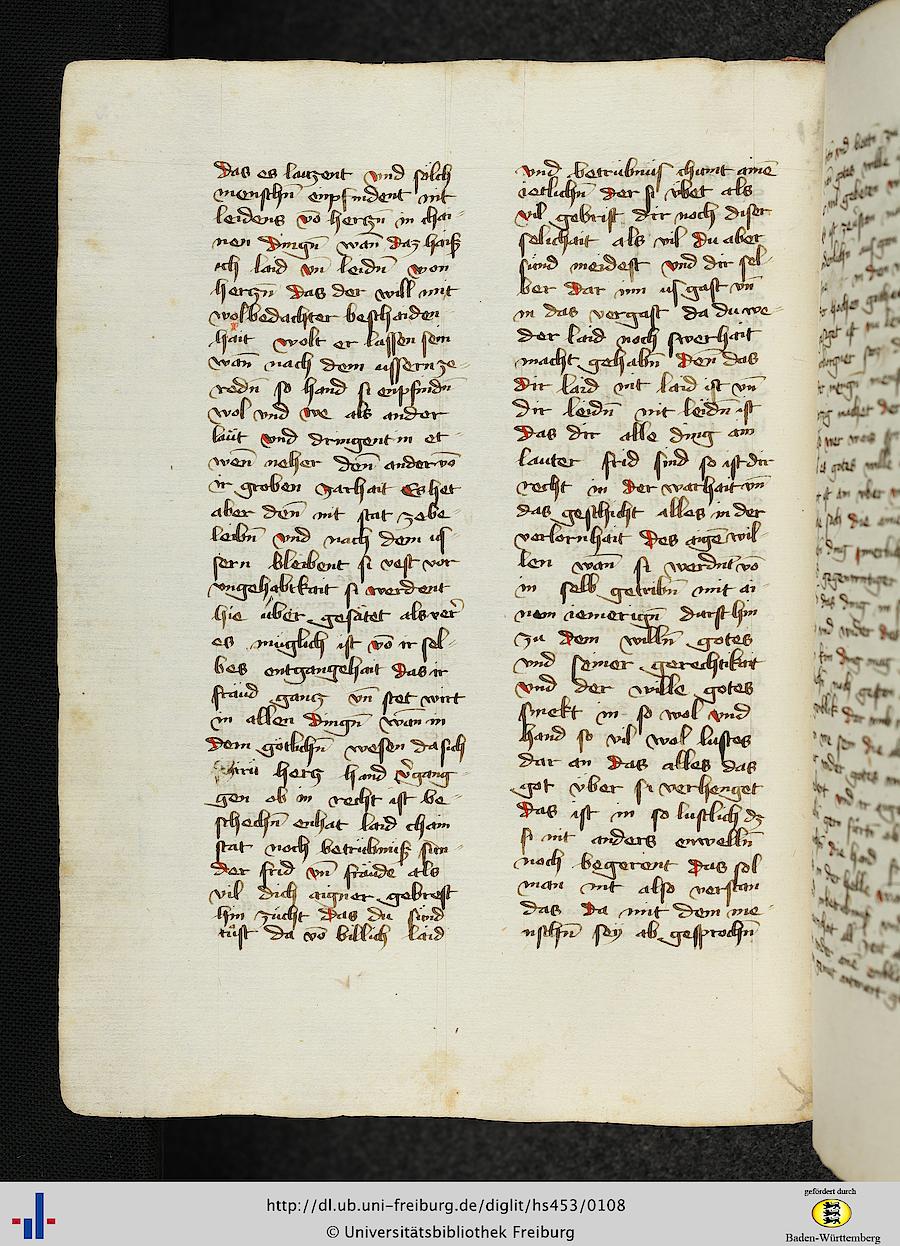 das es lauzent vnd sölch
menschn̄ enpfindent nit
leidens vō hertzn̄ in chai-
nen dingn̄ wan̄ daz haiß
ich laid vn̄ leidn̄ won
hertzn̄ das der will mit
wolbedachter beschaiden-
hait wolt er lassen sein
wan̄ nach dem aussern ze-
redn̄ so hand si enpfindn̄
wol vnd we als ander
laüt vnd dringent in et-
wen̄ neher den̄ andern vō
ir groben zarhait Es het
aber den̄ nit stat ze be-
leibn̄ vnd nach dem us-
sern bleibent si vest vor
vngehabtkait si werdent
hie über gesätet als ver̄
es müglich ist vō ir sel-
bes entgangehait das ir
fräud gantz vn̄ stet wirt
in allen dingn̄ wan̄ in
dem götlichn̄ wesen da sich
herg hand v̄gang-
gen ob in recht ist be-
schechn̄ enhat laid chain
stat noch betrübnuß sun-
der frid vn̄ fräude als
vil dich aigner gebrest
hin zücht das du sünd
tüst da vō billich laid
vnd betrübnüs chumt aine
ietlichn̄ der si übet als
vil gebrist dir noch diser
selichait als vil du aber
sünd meidest vnd dir sel-
ber dar inn us gast vn̄
in das vergast da du we-
der laid noch swerhait
macht gehabn̄ den̄ das
dir laid nit laid ist vn̄
dir leidn̄ nit leidn̄ ist
das dir alle ding ain
lauter frid sind so ist dir
recht in der warhait vn̄
das geschicht alles in der
verlornhait des aigē wil-
len wan̄ si werdnt vō
in selb getribn̄ mit ai-
nem iemerign̄ durst hin
zu dem willn̄ gotes
vnd seiner gerechtikait
vnd der wille gotes
smekt in so wol vnd
hand so vil wol lustes
dar an das alles das
got über si verhenget
das ist in so lustlich dz
si nit anders enwelln̄
noch begerent das sol
man nit also verstan
das da mit dem me-
nschn̄ sey ab gesprochn̄
http://dl.ub.uni-freiburg.de/diglit/hs453/0108
© Universitätsbibliothek Freiburg
gefördert durch
Baden-Württemberg